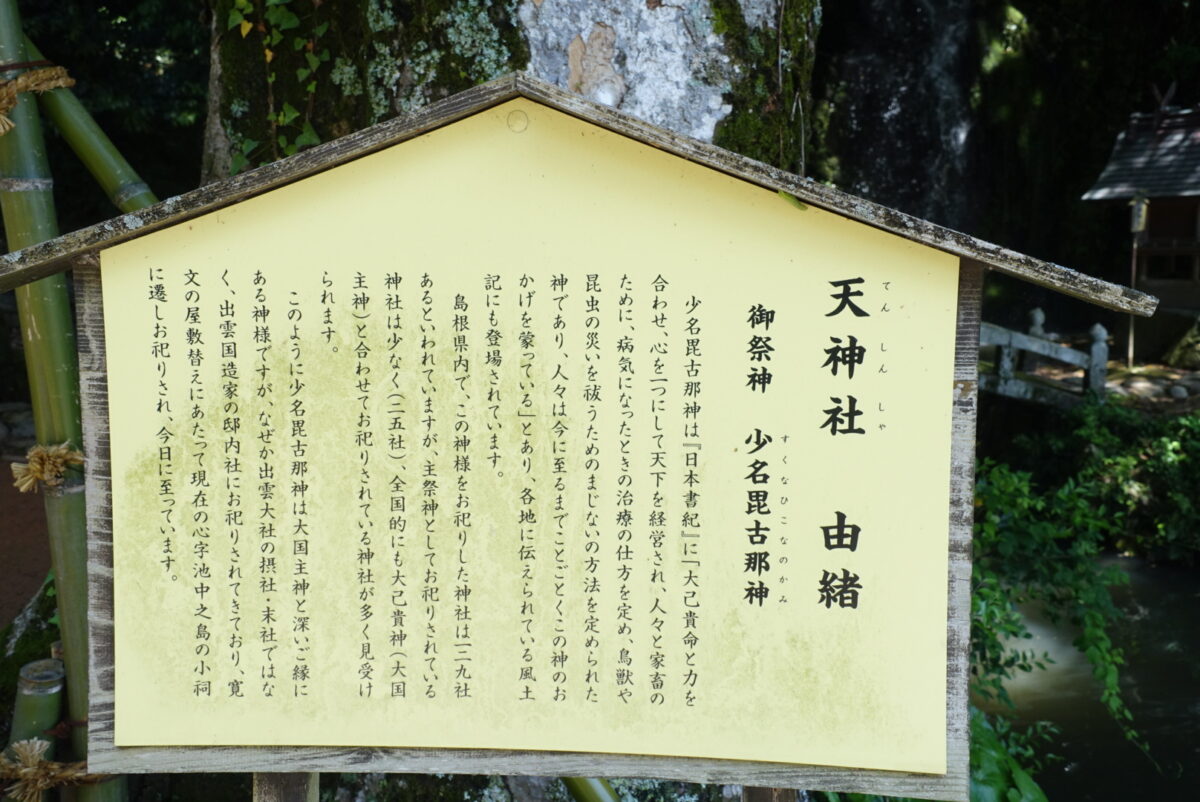 天神社 由緒
てんしんしや
御祭神 少名毘古那神
すくなひこなのかみ
少名毘古那神は『日本書紀』に「大己貴命と力を
合わせ、心を一つにして天下を経営され、人々と家畜の
ために、病気になったときの治療の仕方を定め、鳥獣や
昆虫の災いを祓うためのまじないの方法を定められた
神であり、人々は今に至るまでことごとくこの神のお
かげを蒙っている」とあり、各地に伝えられている風土
記にも登場されています。
島根県内で、この神様をお祀りした神社は一二九社
あるといわれていますが、主祭神としてお祀りされている
神社は少なく(二五社)、全国的にも大己貴神(大国
主神)と合わせてお祀りされている神社が多く見受け
られます。
このように少名毘古那神は大国主神と深いご縁に
ある神様ですが、なぜか出雲大社の摂社・末社ではな
く、出雲国造家の邸内社にお祀りされてきており、寛
文の屋敷替えにあたって現在の心字池中之島の小祠
に遷しお祀りされ、今日に至っています。